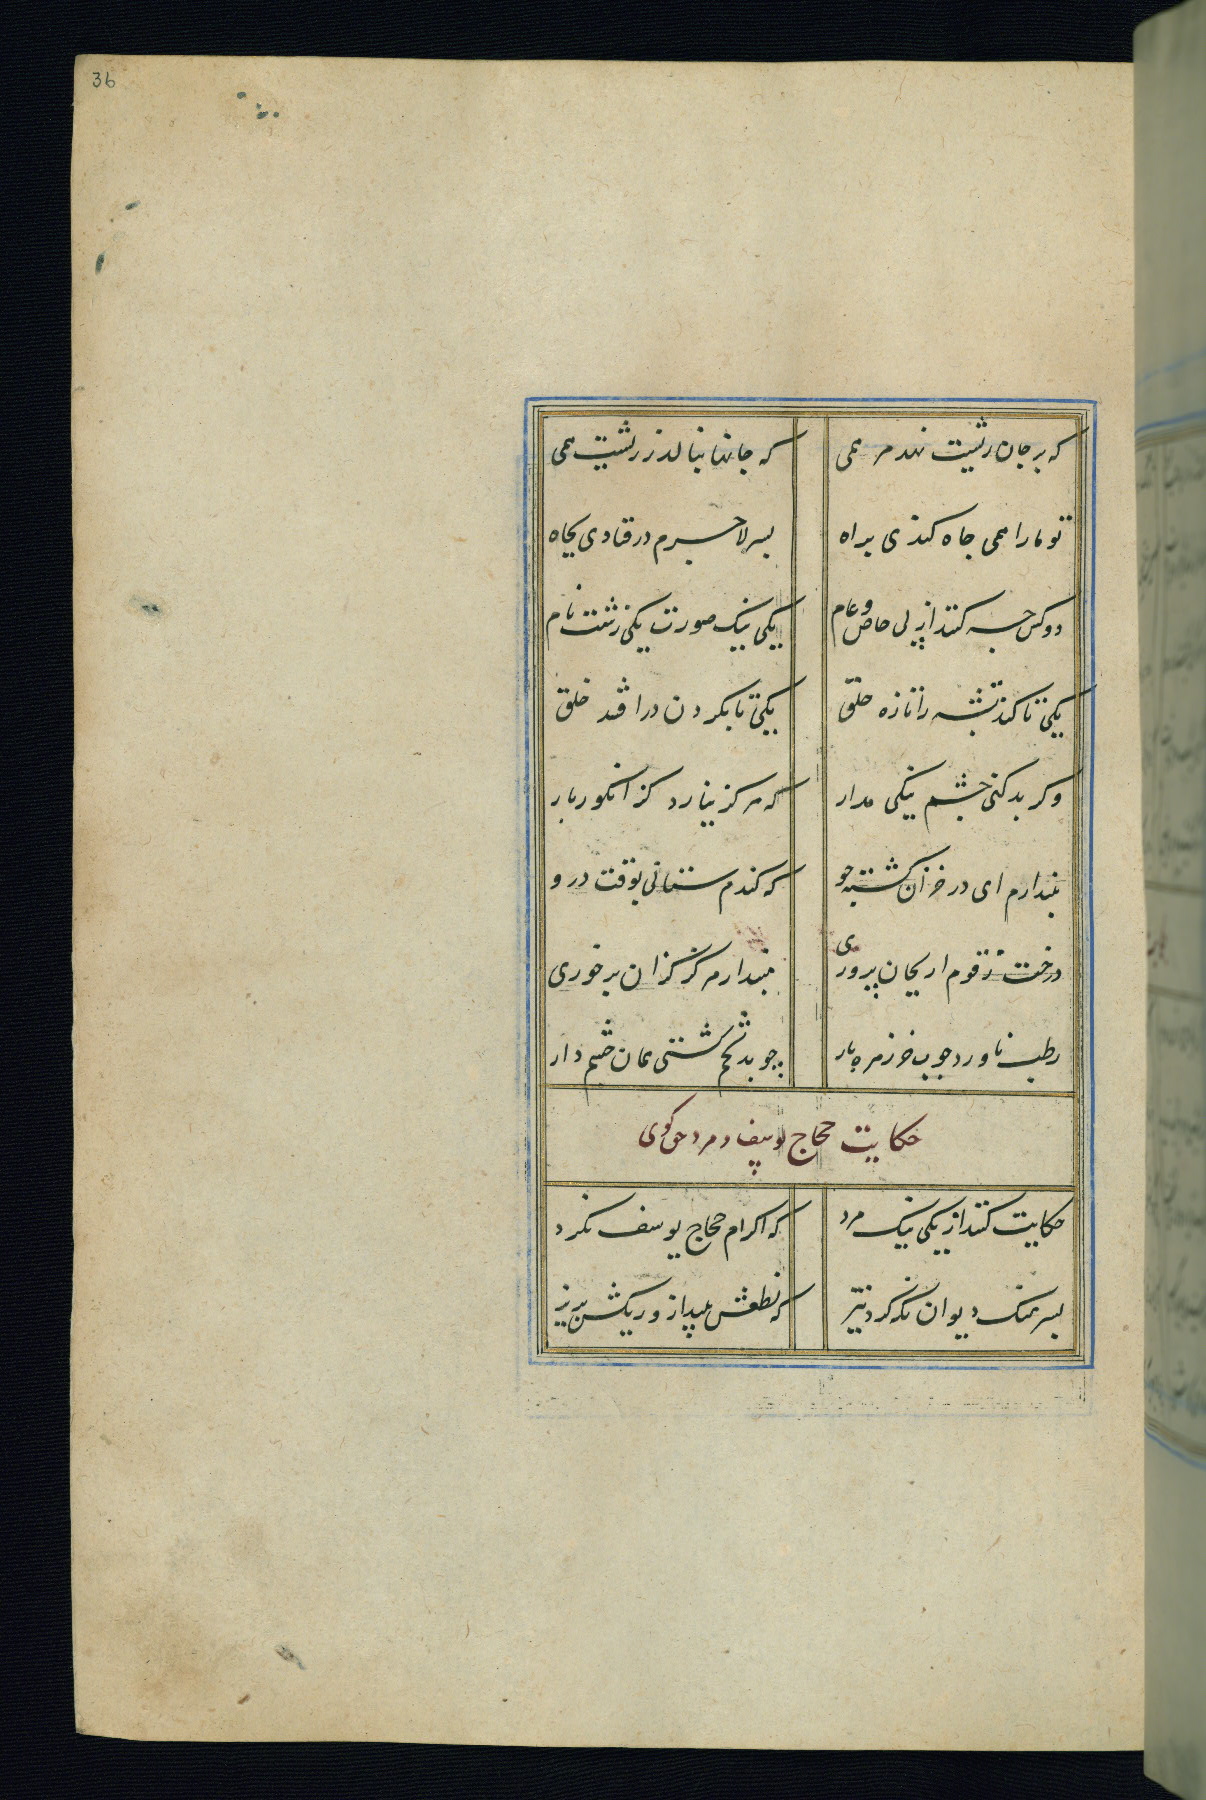 36
که بر جان ریشت نهد مرهمی
که جانها بنالد ز ریشت همی
تو ما را همی چاه کندی براه
بسر لاجرم درفتادی بچاه
دو کس چه کنند از پی خاص و عام
یکی نیک صورت یکی زشت نام
یکی تا کند تشنه را تازه حلق
یکی تا بگردن درافتد خلق
وگر بد کنی چشم نیکی مدار
که هرگز نیارد گز انگور بار
نپندارم ای در خزان کشته جو
که گندم ستانی بوقت درو
درخت زقوم ار بجان پروری
مپندار هرگز کزان برخوری
رطب ناورد چوب خرزهره بار
چو بد تخم کشتی همان چشم دار
حکایت حجاج یوسف و مرد حق گوی
حکایت کنند از یکی نیک مرد
که اکرام حجاج یوسف نکرد
بسرهنگ دیوان نگه کرد تیز
که نطعش بینداز و ریگش بریز